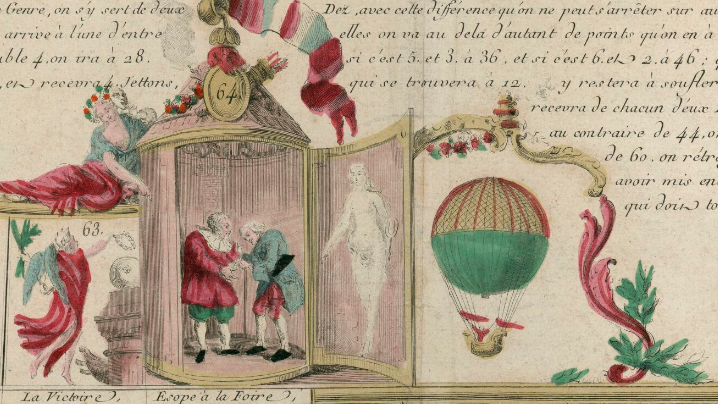 Genre, on s'y sert de deux
Dez, avec cette différence qu'on ne peut s'arrêter sur au
arrive à l'une d'entre
elles on va au delà d'autant de points qu'on en à
ble 4, on ira à 28.
si c'est 5. et 3. à 36, et si c'est 6. et 2. à 46 ;
et recevra 4. Jettons,
qui se trouvera à 12.
y restera à soufler
recevra de chacun d'eux
au contraire de 44, on
de 60. on rétr
avoir mis en
qui doit to
64.
63.
La Victoire,
Esope à la Foire,